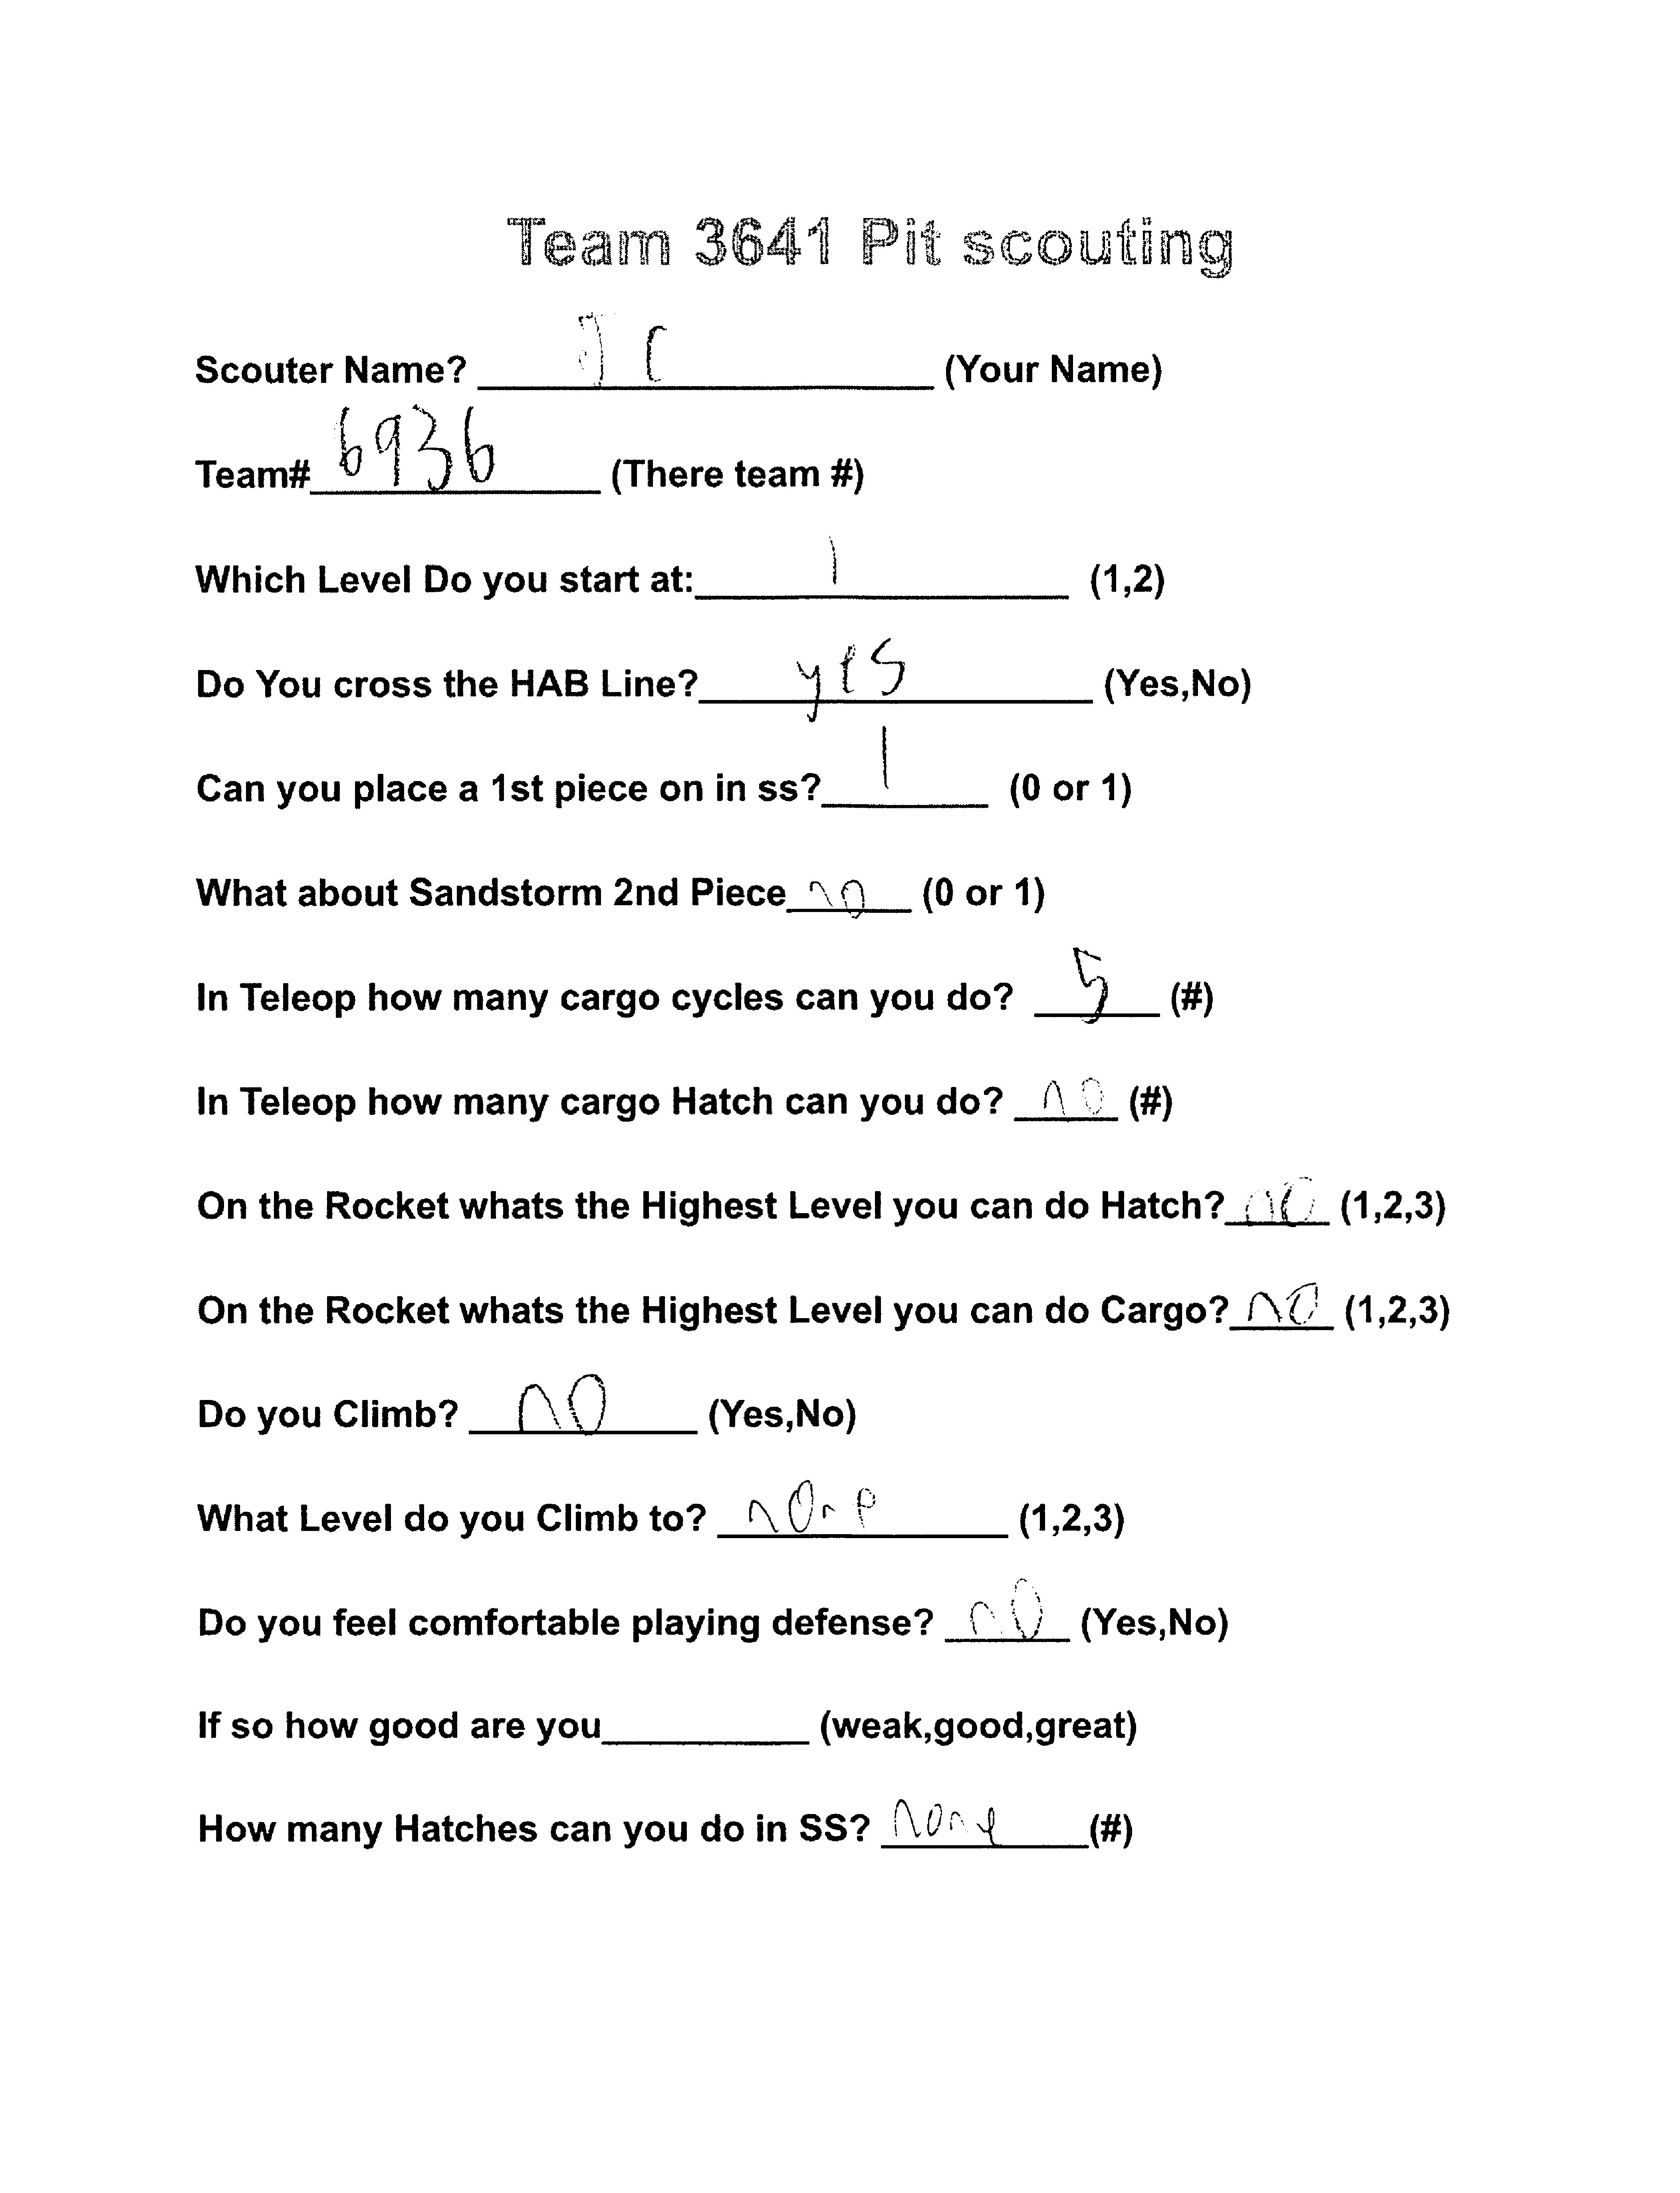 Team 3641 Pit scouting
Scouter Name? J C (Your Name)
Team# 6936 (There team #)
Which Level Do you start at: 1 (1,2)
Do You cross the HAB Line? yes (Yes,No)
Can you place a 1st piece on in ss? 1 (0 or 1)
What about Sandstorm 2nd Piece no (0 or 1)
In Teleop how many cargo cycles can you do? 5 (#)
In Teleop how many cargo Hatch can you do? no (#)
On the Rocket whats the Highest Level you can do Hatch? no (1,2,3)
On the Rocket whats the Highest Level you can do Cargo? no (1,2,3)
Do you Climb? no (Yes,No)
What Level do you Climb to? none (1,2,3)
Do you feel comfortable playing defense? no (Yes,No)
If so how good are you (weak,good,great)
How many Hatches can you do in SS? none (#)